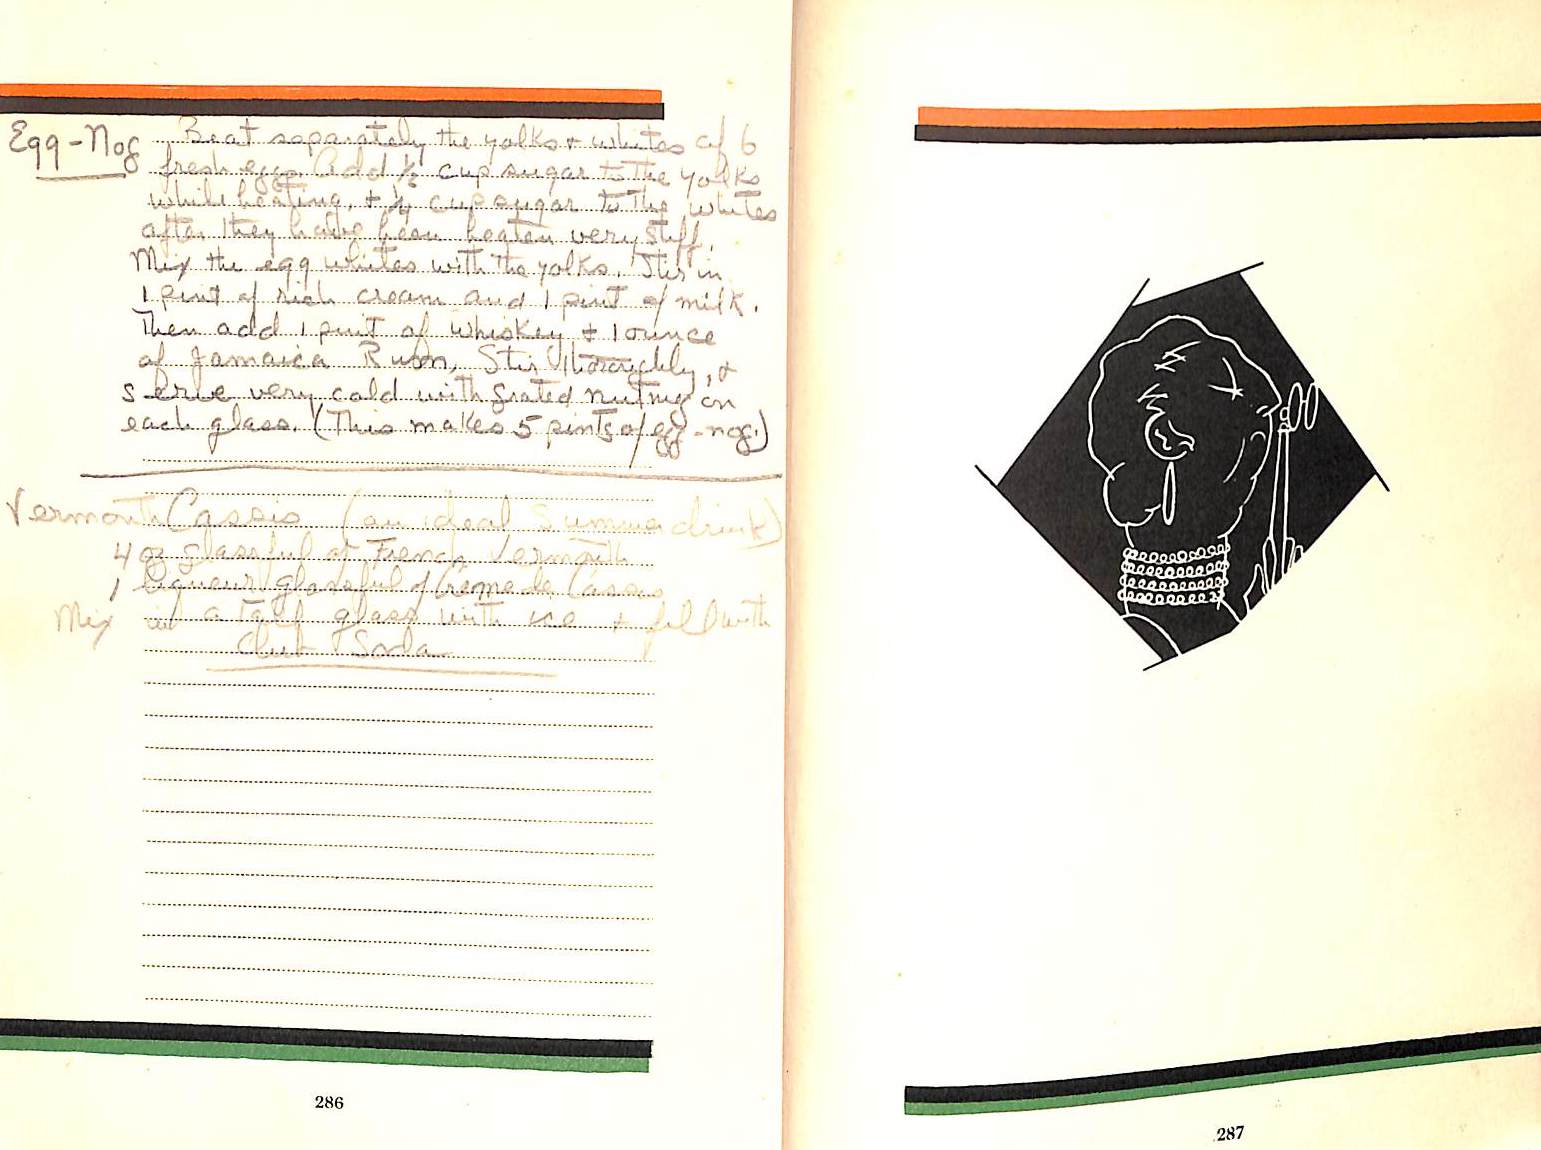 Egg-Nog Beat separately the yolks + whites of 6
fresh eggs. Add ½ cup sugar to the yolks
while beating, + ¼ cup sugar to the whites
after they have been beaten very stiff.
Mix the egg whites with the yolks. Stir in
1 pint of rich cream and 1 pint of milk.
Then add 1 pint of whiskey + 1 ounce
of Jamaica Rum, Stir thoroughly, +
serve very cold with grated nutmeg on
each glass. (This makes 5 pints of egg-nog.)
Vermouth Cassis (an ideal Summer drink)
4 oz glassful of French Vermouth
1 liqueur glassful of Creme de Cassis
Mix in a tall glass with ice + fill with
Club Soda
286
287